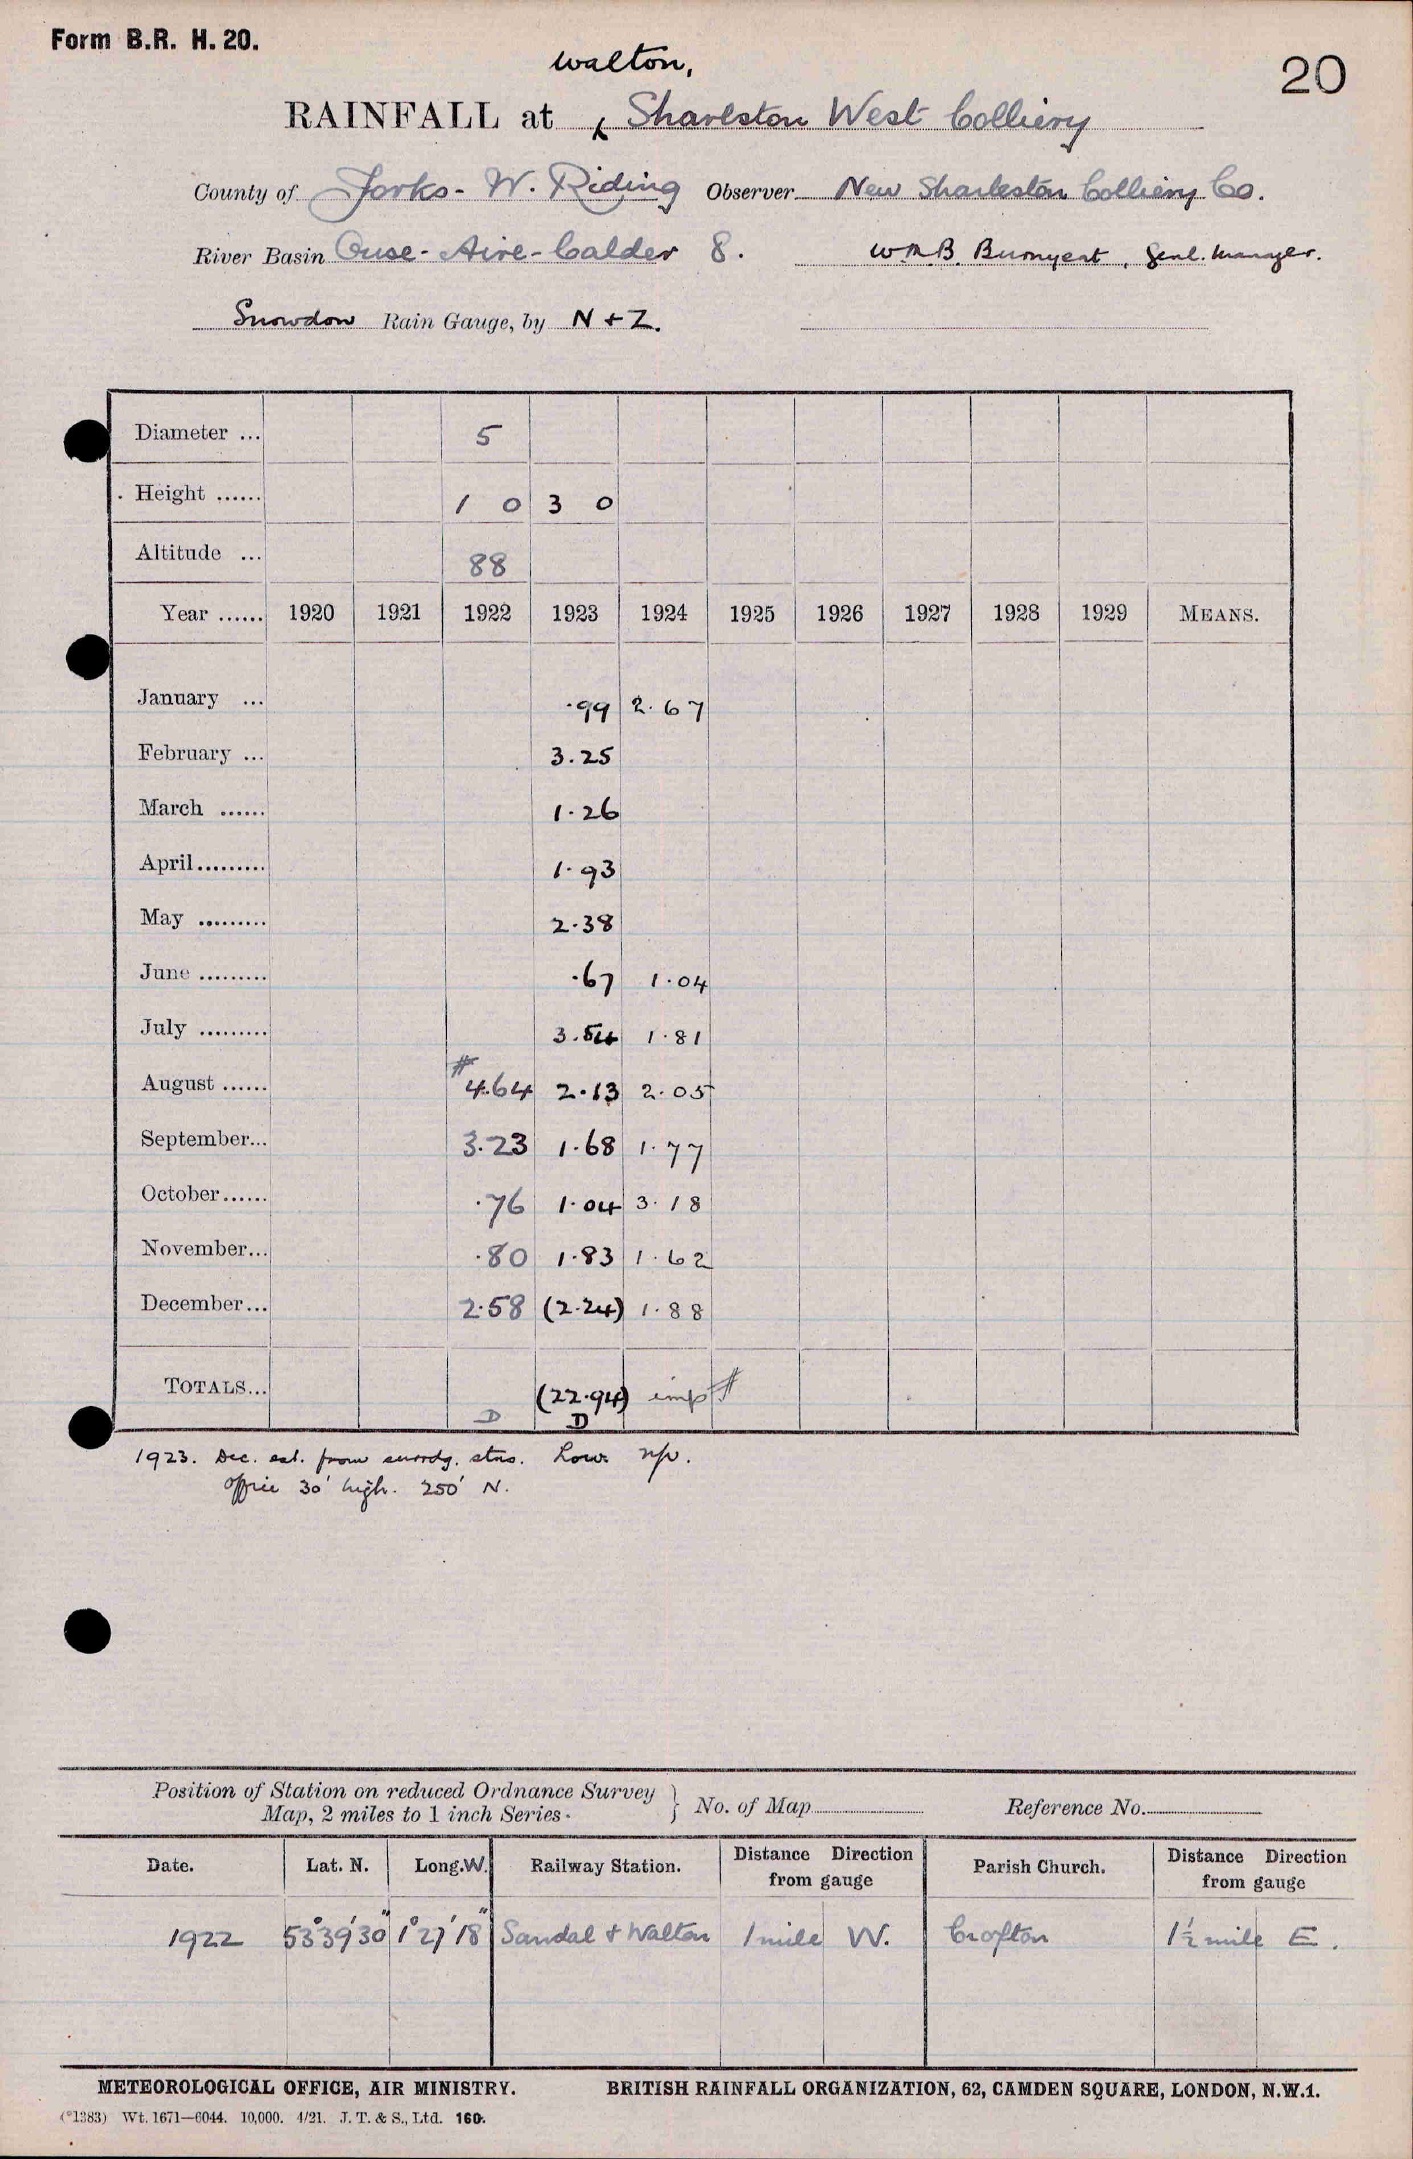 Form B.R. H. 20.
20
Walton,
RAINFALL at Sharlston West Colliery
County of Yorks - W. Riding Observer New Sharleston Colliery Co.
River Basin Ouse - Aire - Calder 8. Wm B. Bunyeat, Genl. Manager.
Snowdon Rain Gauge, by N + Z.
Diameter ... 5
Height ...... 1 0 3 0
Altitude ... 88
Year ...... 1920 1921 1922 1923 1924 1925 1926 1927 1928 1929 MEANS.
January ... ·99 2.67
February ... 3.25
March ...... 1.26
April......... 1.93
May ......... 2.38
June ......... ·67 1.04
July ......... 3.54 1.81
August ...... # 4.64 2.13 2.05
September... 3.23 1.68 1.77
October...... ·76 1.04 3.18
November... ·80 1.83 1.62
December... 2.58 (2.24) 1.88
TOTALS... (22.94) imp #
D D
1923. Dec. est. from surrdg. stns. Low.
Office 30' high. 250' N.
Position of Station on reduced Ordnance Survey
Map, 2 miles to 1 inch Series. } No. of Map Reference No.
Date. Lat. N. Long. W. Railway Station. Distance from gauge Direction Parish Church. Distance from gauge Direction
1922 53°39'30" 1°27'18" Sandal & Walton 1 mile W. Crofton 1½ mile E.
METEOROLOGICAL OFFICE, AIR MINISTRY. BRITISH RAINFALL ORGANIZATION, 62, CAMDEN SQUARE, LONDON, N.W.1.
(*1383) Wt. 1671—6044. 10,000. 4/21. J. T. & S., Ltd. 160.